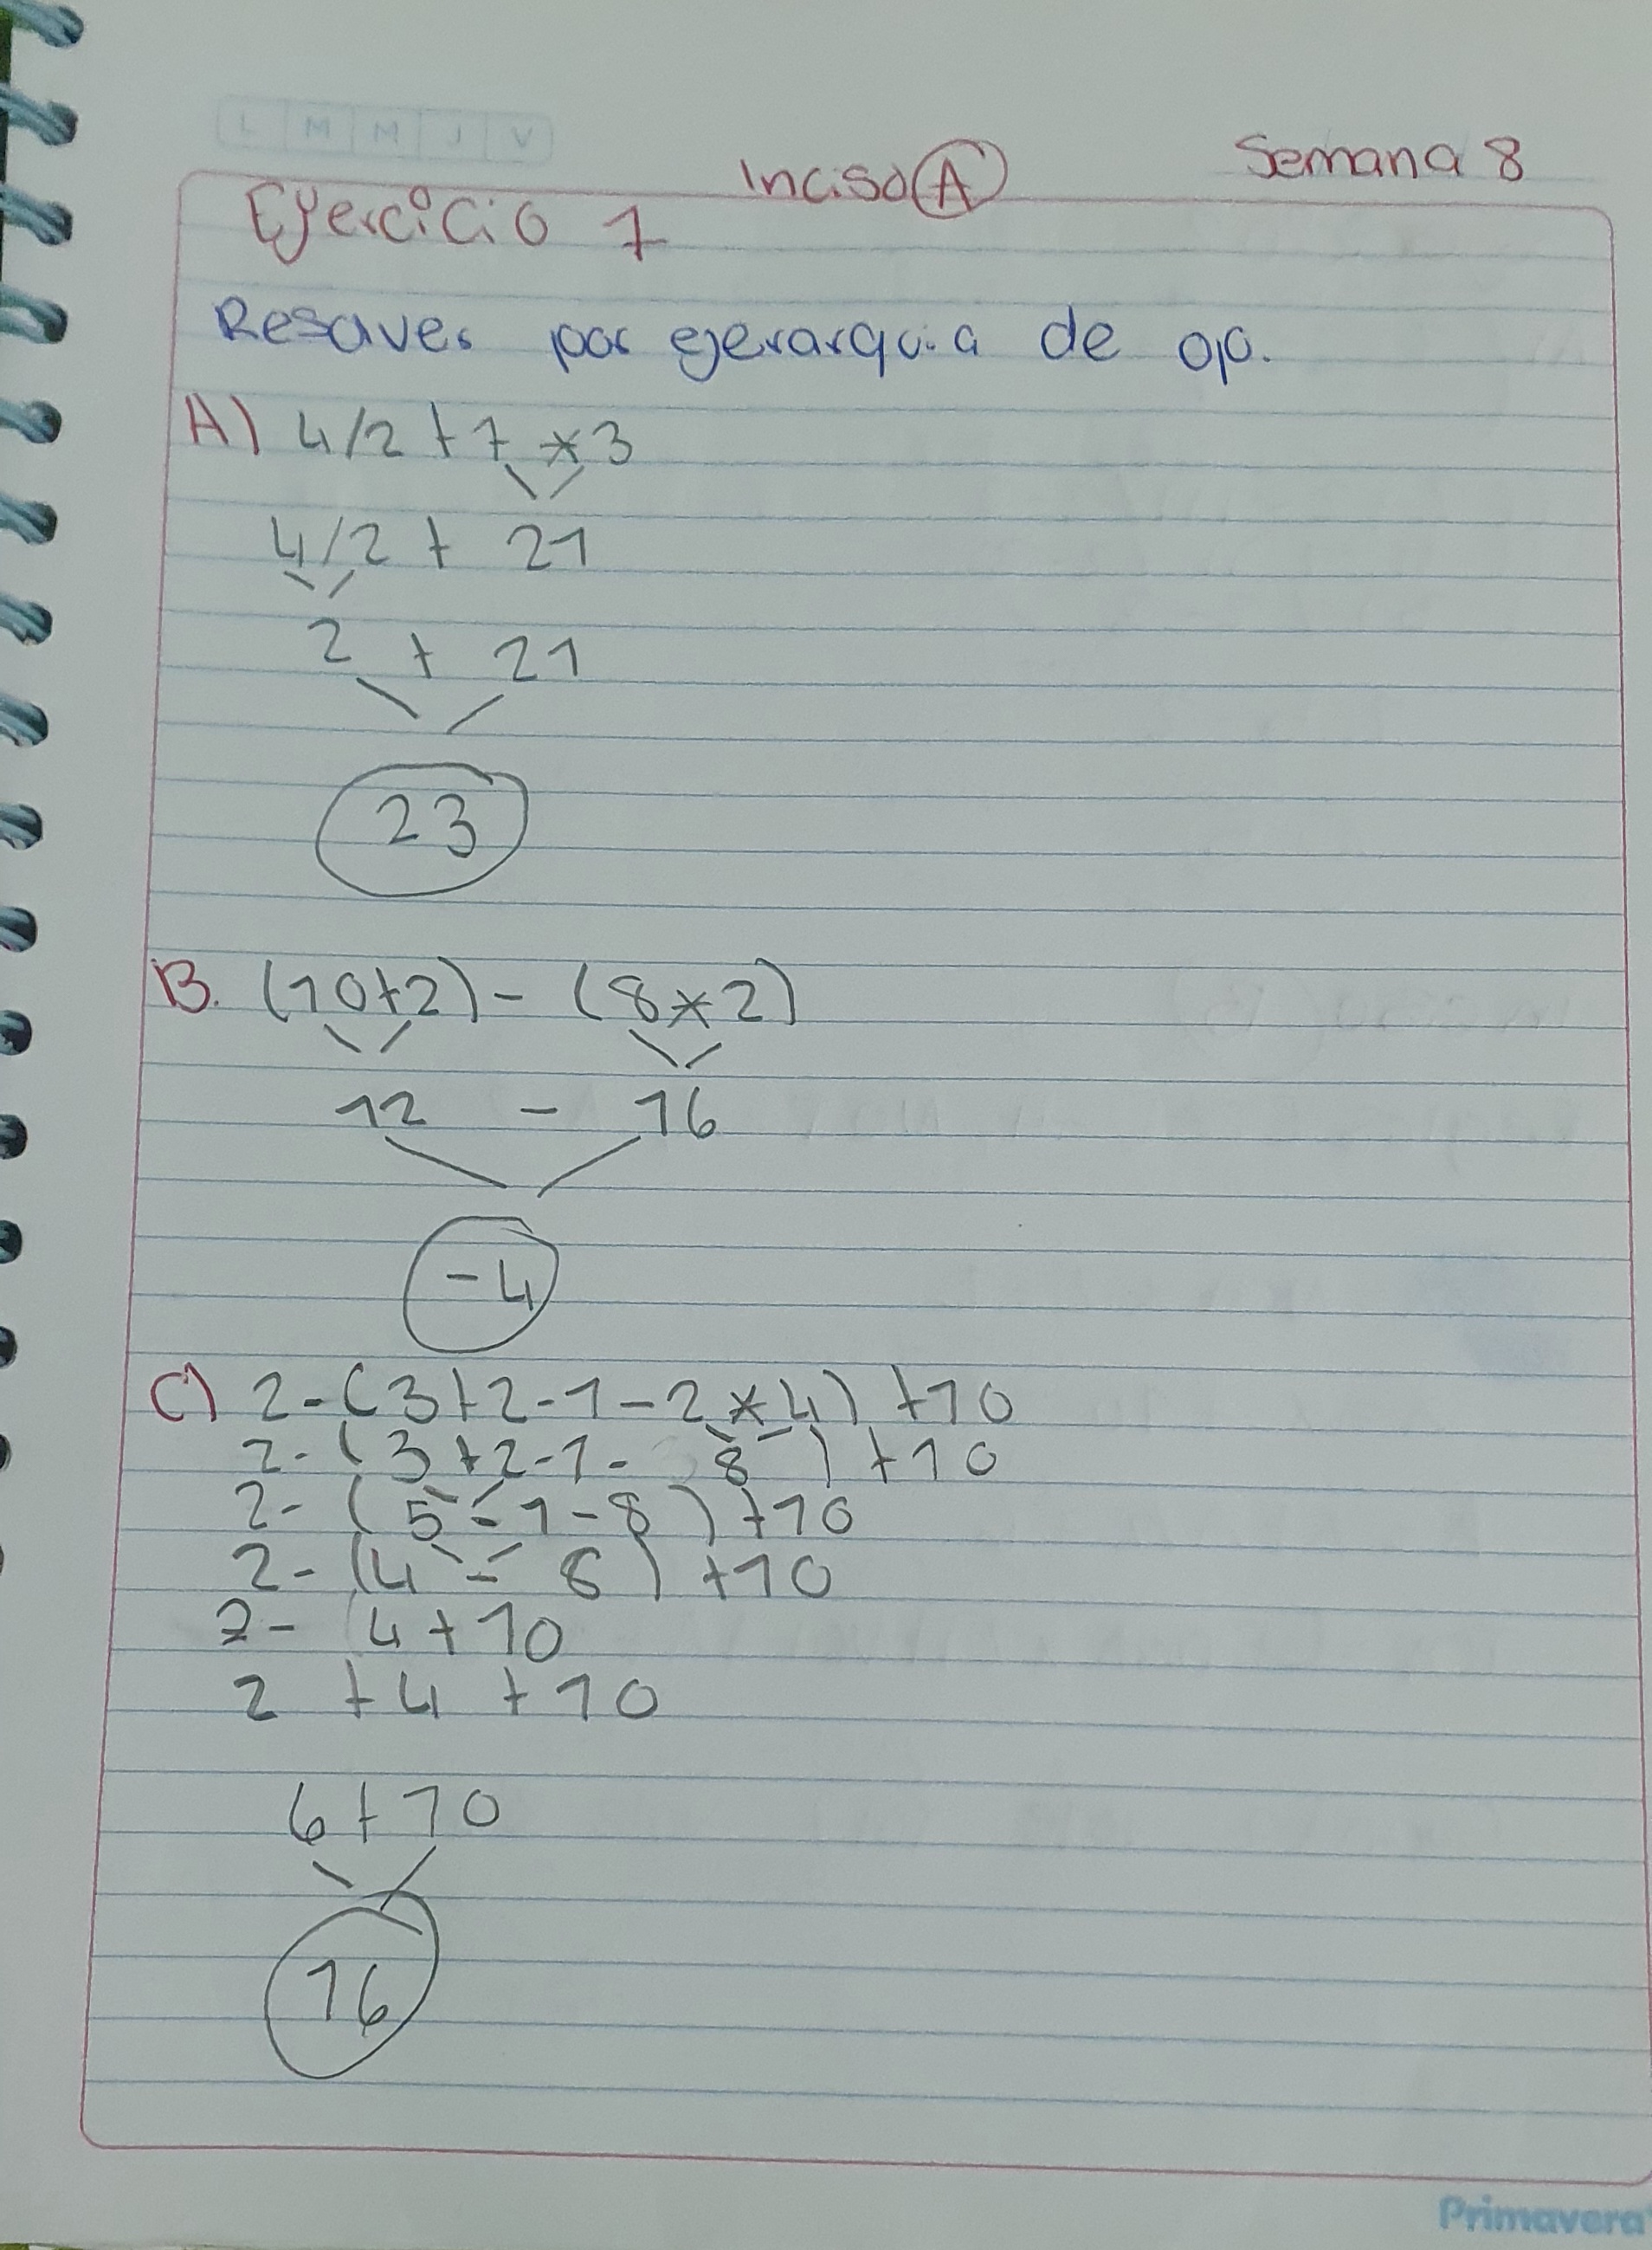 L M M J V
Inciso A
Semana 8
Ejercicio 1
Resolver por ejerarquia de op.
A) 4/2 + 7 * 3
4/2 + 21
2 + 21
23
B. (10+2) - (8*2)
12 - 16
-4
C) 2-(3+2-1-2*4)+10
2-(3+2-1- 8)+10
2-(5-1-8)+10
2-(4-8)+10
2- 4+10
2 +4 +10
6+10
16
Primavera